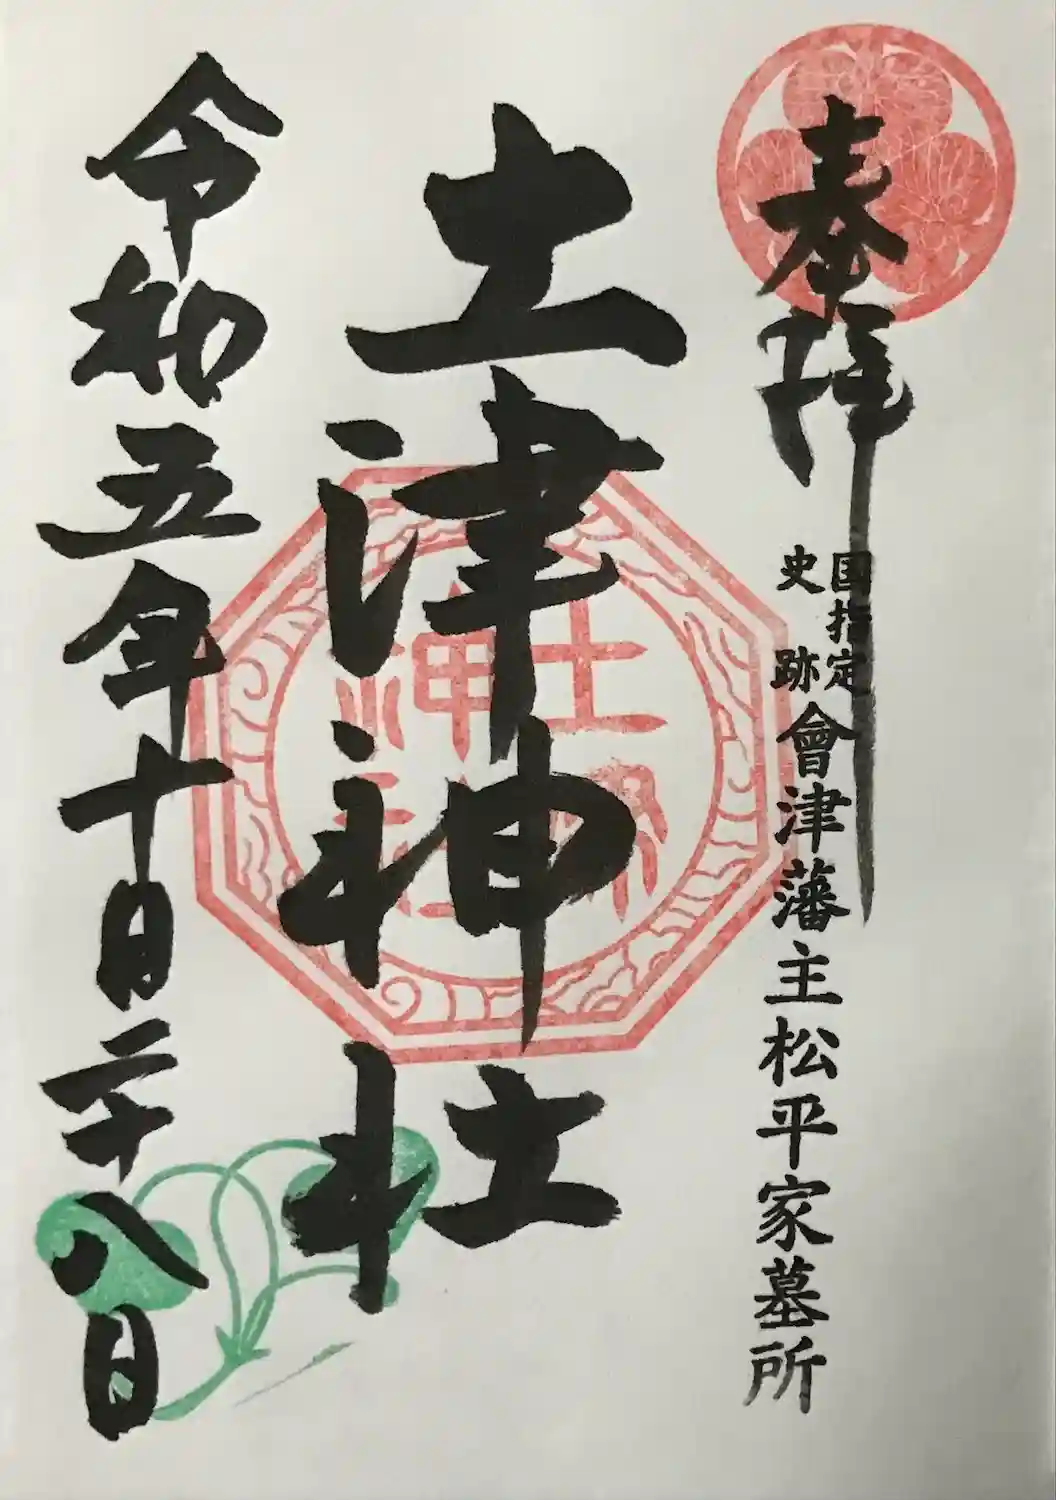 奉拝
国指定
史跡
會津藩主松平家墓所
土津神社
土津
神社
令和五年十月二十八日